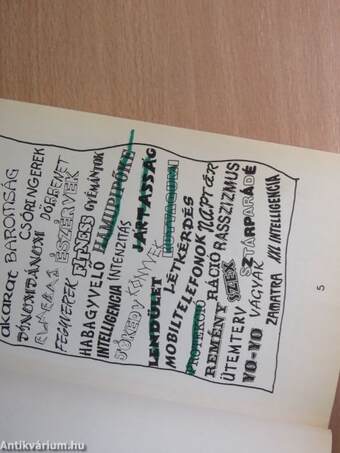 akarat BAROMSÁG
DÍNOMDÁNOM
DÖBBENET
ÉSZÉRVEK
FEGYVEREK FITNESS GYÉMÁNTOK
HABAGYVELŐ HAMUPIPŐKE
INTELLIGENCIA INTENZITÁS
JÁRTASSÁG
JÓKEDV
LENDÜLET KUTYAGUMI
LÉTKÉRDÉS
MOBILTELEFONOK NAPTÁR
PROTEKCIÓ RÁCIÓ RASSZIZMUS
REMÉNY SZEX SZTÁRPARÁDÉ
ÜTEMTERV VÁGYAK
YO-YO XXI INTELLIGENCIA
5
Antikvárium.hu